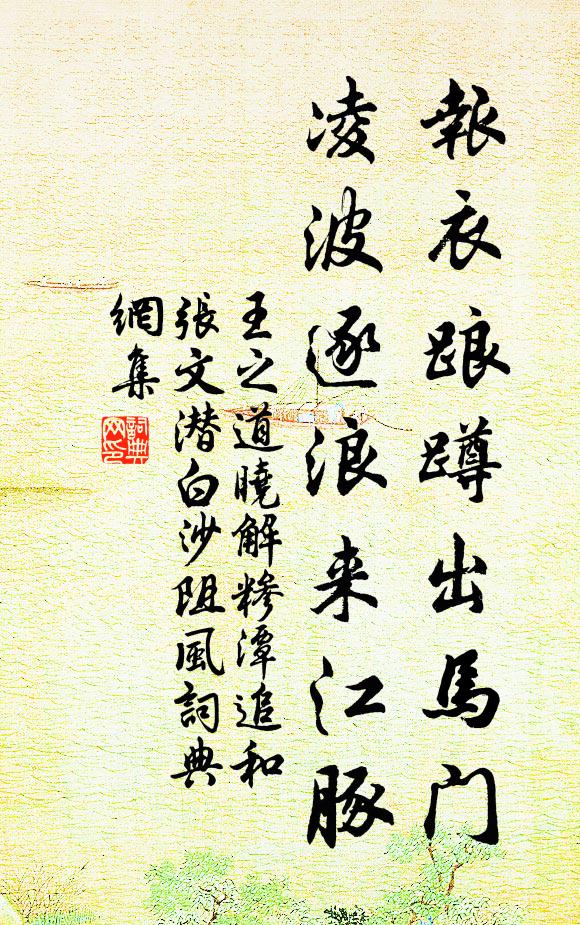 報衣踉蹲出馬门
凌波逐浪来江豚
王之道曉解糁潭追和
張文潜白沙阻風詞典
網集
詞典
网印